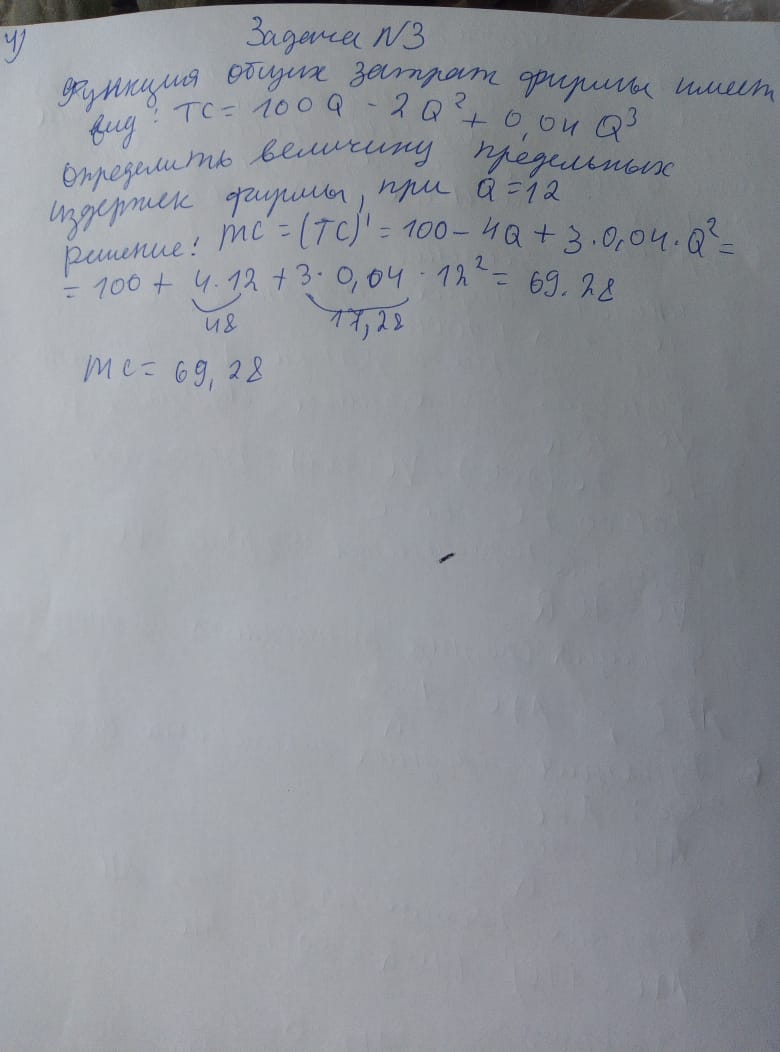 4)
Задача N3
Функция общих затрат фирмы имеет
вид: TC = 100Q - 2Q² + 0,04 Q³
Определить величину предельных
издержек фирмы, при Q = 12
Решение: MC = (TC)' = 100 - 4Q + 3·0,04·Q² =
= 100 + 4·12 + 3·0,04·12² = 69.28
48 17,28
MC = 69,28